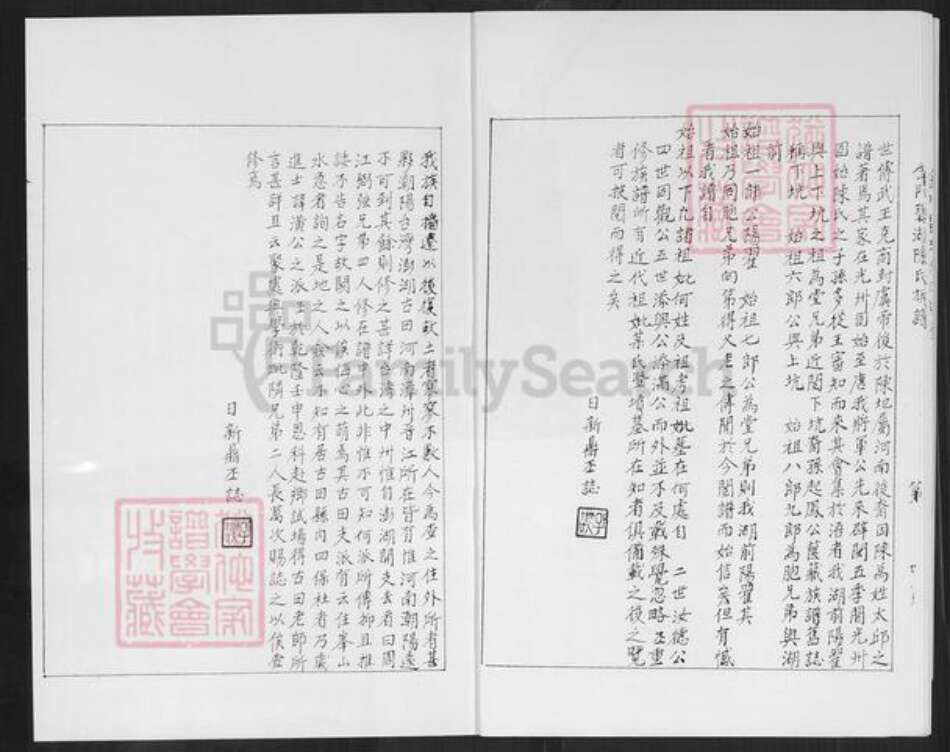 世傳武王克商封虞帝後於陳地屬河南後看因陳為姓太邱之
譜者焉其家在光州固始至唐我將軍公先來辟閩五季閩光州
固始陳氏之子孫多從王審知而來其會集於浯者我湖前陽翟
與上下坑之祖為堂兄弟近閱下坑裔孫起鳳公蔭藏族譜舊誌
稱下坑 始祖六郎公與上坑 始祖八郎九郎為胞兄弟與湖
前
始祖一郎公陽翟 始祖七郎公為堂兄弟則我湖前陽翟其
始祖乃同胞兄弟向第得父老之傳聞於今閱譜而始信矣但有憾
者我譜自
始祖以下凡諸祖妣何姓及祖考祖妣墓在何處自 二世汝德公
四世同觀公五世添興公添滿公而外並不及載殊覺忽略丕重
修族譜所有近代祖妣某氏暨墳墓所在知者俱備載之後之覽
者可披閱而得之矣
日新鼎丕誌
我族自播遷以後後人今為查之住外所有甚
夥潮陽台灣澎湖古田河南漳州晉江所在皆有惟河南潮陽遠
不可到其餘則修之甚詳台灣之中州惟自澎湖開支去者曰周
江弼強兄弟四人修在譜中外此非惟不可知何派所傳抑且推
諉不告名字故闕之以俟伊心之萌焉其古田支派有云住峯山
水急者詢之是地之人僉云不知有居古田縣內四保杜者乃武
進士諱潢公之派丕於乾隆壬申恩科赴鄉試場得古田老師所
言甚詳且云聚處無學術毗隣兄弟二人長萬次賜誌之以俟查
修焉
日新鼎丕誌
FamilySearch